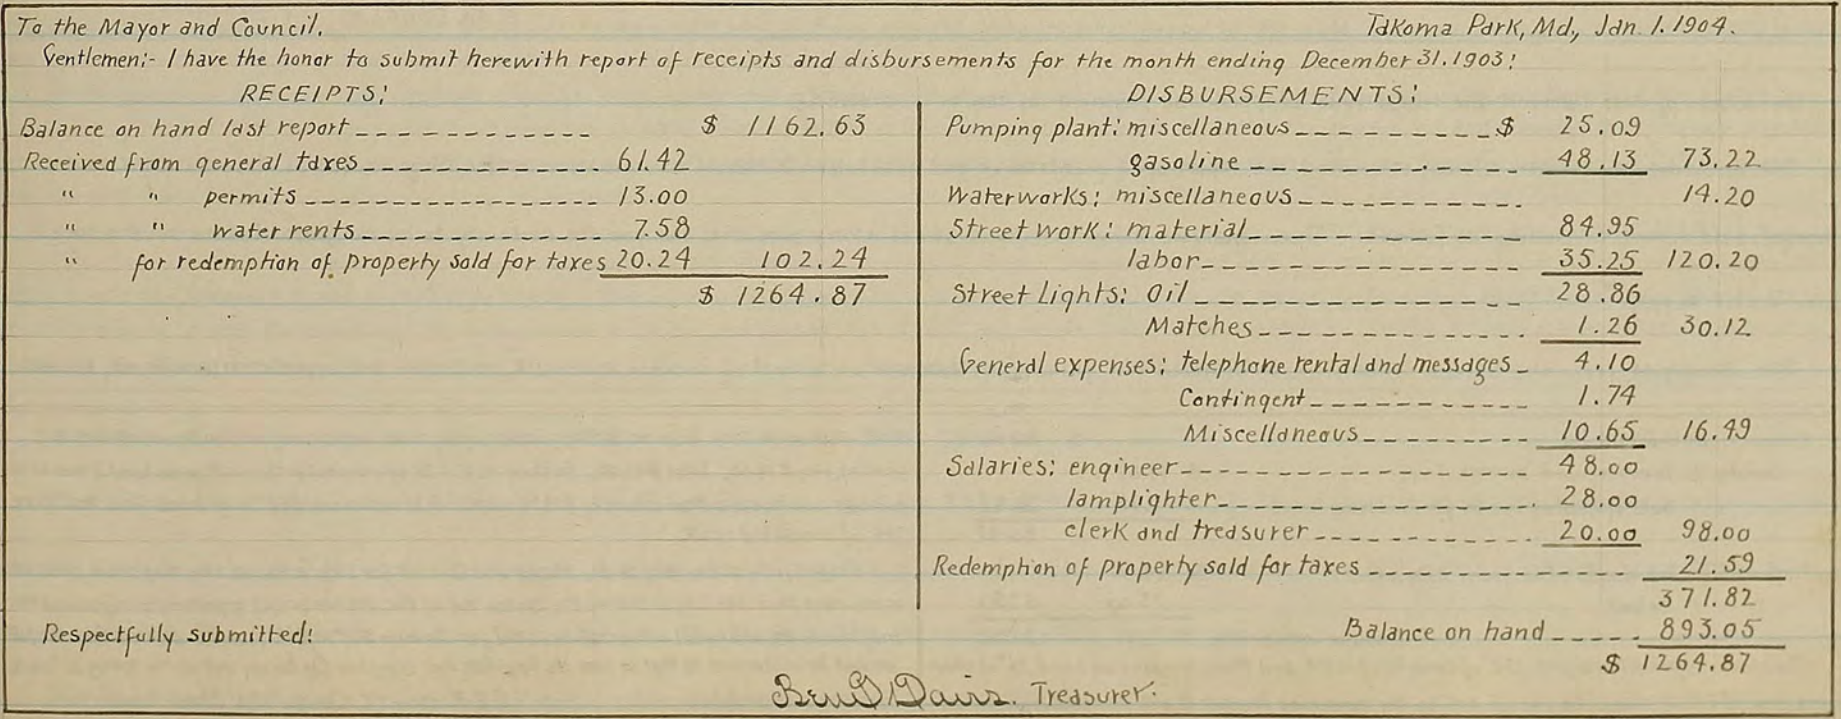 To the Mayor and Council. Takoma Park, Md., Jan. 1. 1904.
Gentlemen:- I have the honor to submit herewith report of receipts and disbursements for the month ending December 31. 1903:
RECEIPTS:
Balance on hand last report $ 1162.63
Received from general taxes 61.42
" " permits 13.00
" " water rents 7.58
" for redemption of property sold for taxes 20.24 102.24
$ 1264.87
DISBURSEMENTS:
Pumping plant: miscellaneous $ 25.09
gasoline 48.13 73.22
Waterworks: miscellaneous 14.20
Street work: material 84.95
labor 35.25 120.20
Street Lights: Oil 28.86
Matches 1.26 30.12
General expenses: telephone rental and messages 4.10
Contingent 1.74
Miscellaneous 10.65 16.49
Salaries: engineer 48.00
lamplighter 28.00
clerk and treasurer 20.00 98.00
Redemption of property sold for taxes 21.59
371.82
Balance on hand 893.05
$ 1264.87
Respectfully submitted:
Ben G Davis. Treasurer.